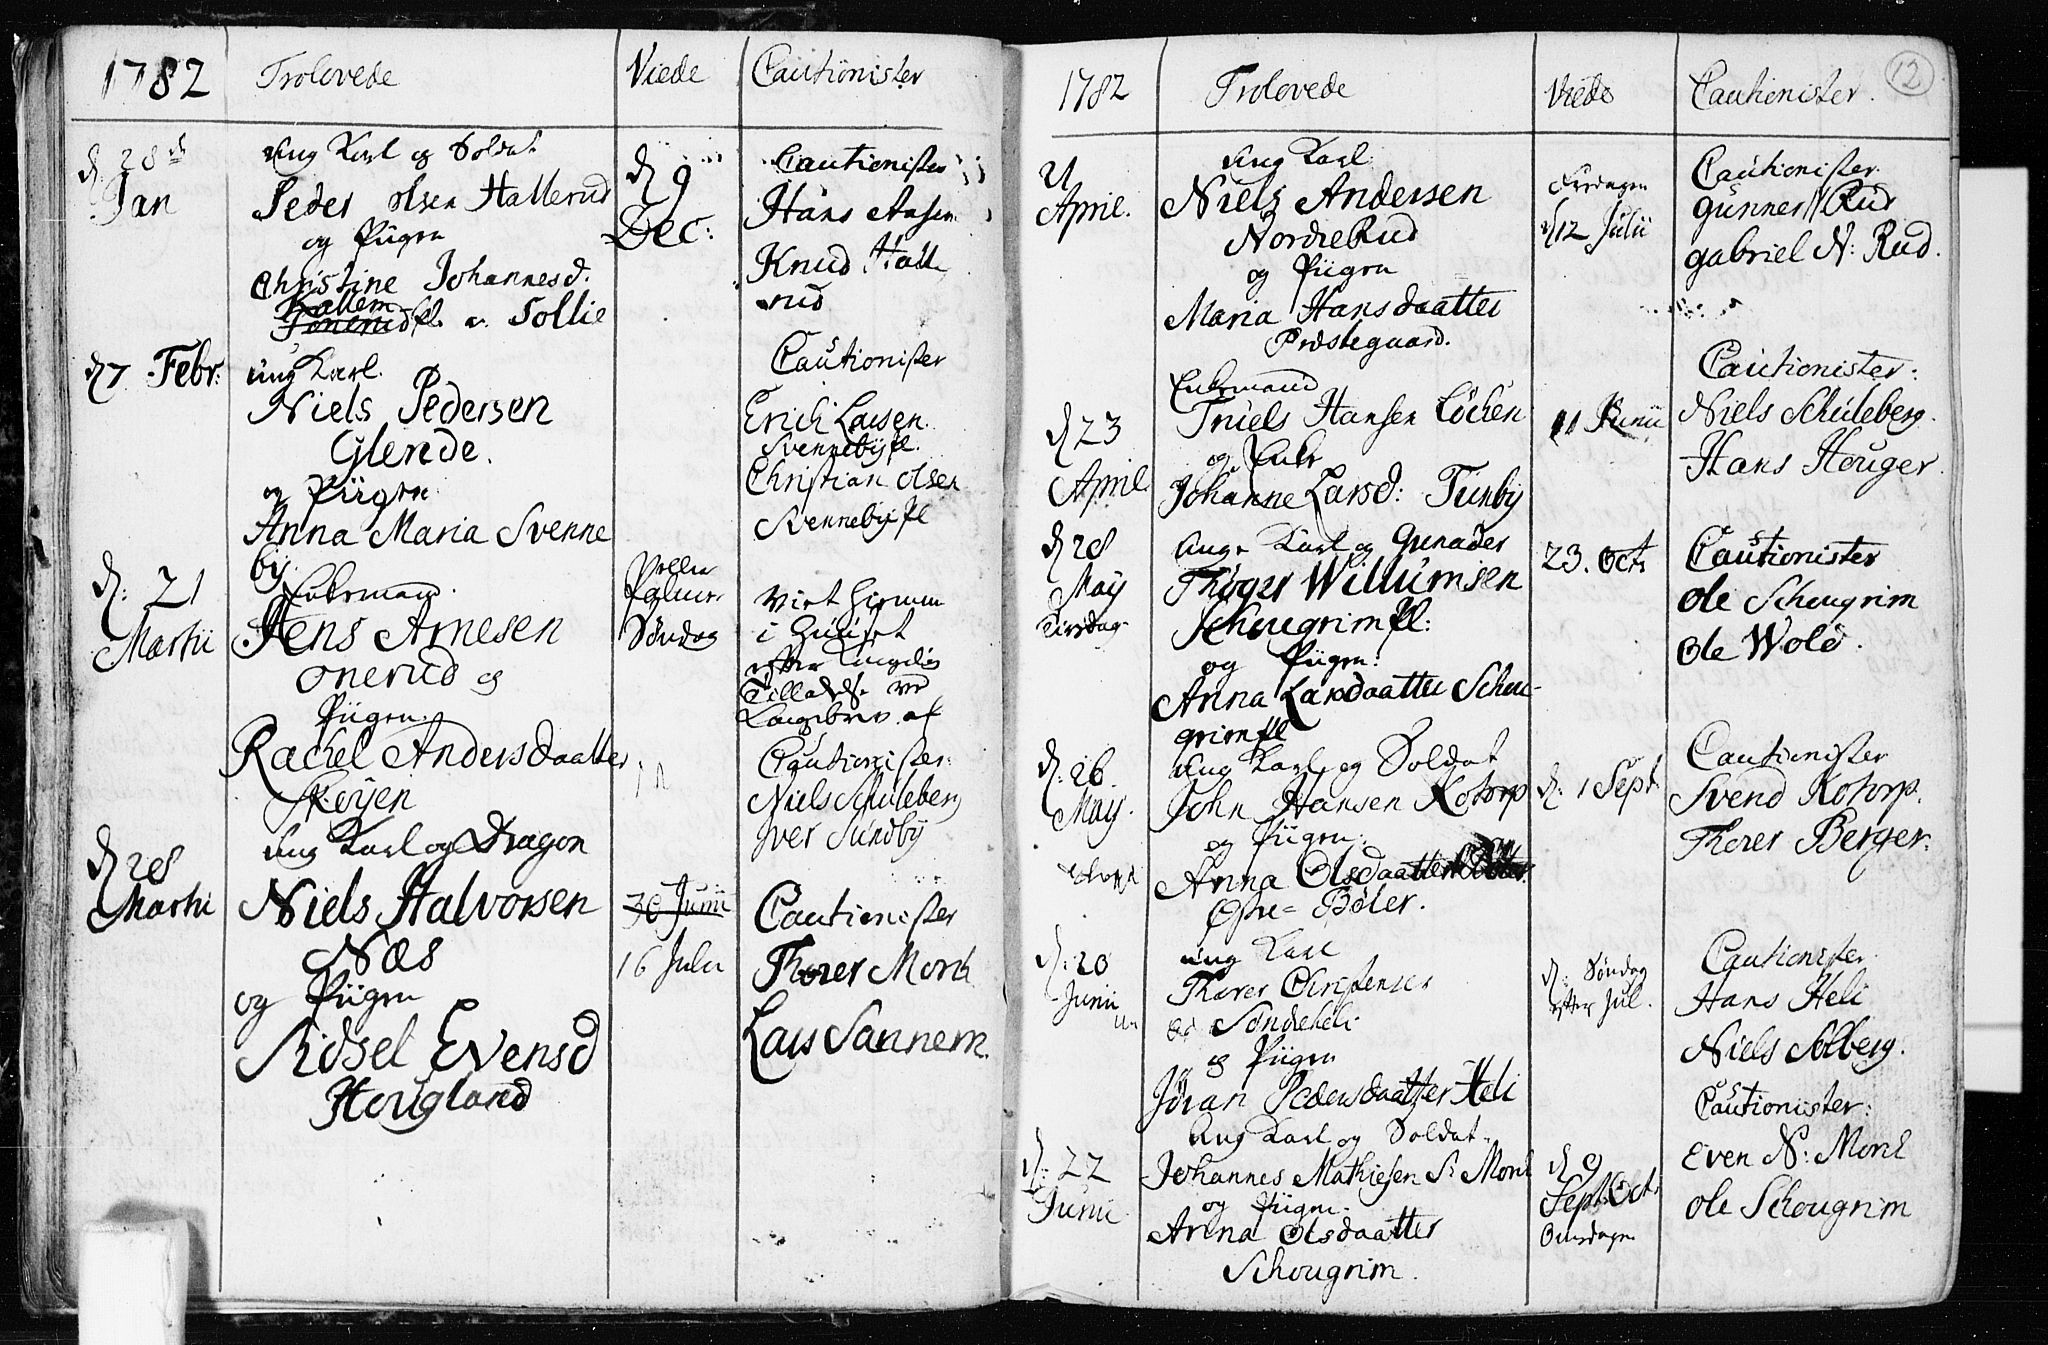 1782
Trolovede
Viede
Cautionister
d. 28de
Jan
Ung Karl og Soldat
Peder Olsen Hallerud
og Pigen
Christine Johannesd.
Kallem
Jonerud pl. Sollie
d 9
Dec:
Cautionister
Hans
Knud Halle
rud
d 7 Febr:
ung Karl.
Niels Pedersen
Glende.
og Piigen
Anna Maria Svenne
by.
Cautionister
Erich Larsen
Svenneby pl.
Christian Olsen
Svenneby pl
d: 21
Martii
Enkemand.
Jens Arnesen
Onerud og
Piigen.
Rachel Andersdaatter
Skøyen
Palme
Søndag
Viet hiemme
i Huuset
efter Kongelig
Tilladelse ved
af
Cautionister:
Niels Schuleberg
Iver Sundby
d 28
Martii
Ung Karl og Dragon
Niels Halvorsen
Næs
og Piigen
Sidsel Evensd
Hougland
30 Junii
16 Julii
Cautionister
Thorer Morch
Lars Sannem.
12
1782
Trolovede
Viede
Cautionister.
April.
Ung Karl
Niels Andersen
Nordre Rud
og Piigen
Maria Hansdaatter
Præstegaard.
d 12 Julii
Cautionister
Gunner Rud
Gabriel N: Rud.
d 23
April
Enkemand
Truels Hansen Løchen
og Enke
Johanne Larsd: Tunby
11 Junii
Cautionister:
Niels Schuleberg.
Hans Houger.
d 28
May
Tirsdag
Ung Karl og Grenader
Thøger Willumsen
Schougrim pl:
og Piigen:
Anna Larsdaatter Schou-
grim pl
23. Oct
Cautionister
Ole Schougrim
Ole Wole.
d: 26
May.
Ung Karl og Soldat
John Hansen Kotorp
og Piigen:
Anna Olsdaatter
Østre = Bøler.
d: 1 Sept.
Cautionister
Svend Kotorp.
Thorer Berger.
d: 20
Junii
Ung Karl
Thorer Christensen
Søndeheli
og Piigen
Jøran Pedersdaatter Heli
d: Søndag
efter Jul.
Cautionister
Hans Heli
Niels Solberg.
d: 22
Junii
Ung Karl og Soldat
Johannes Mathiesen S: Morch
og Piigen
Anna Olsdaatter
Schougrim.
d 9
Sept Oct
Onsdagen
Cautionister:
Even N: Morch
Ole Schougrim